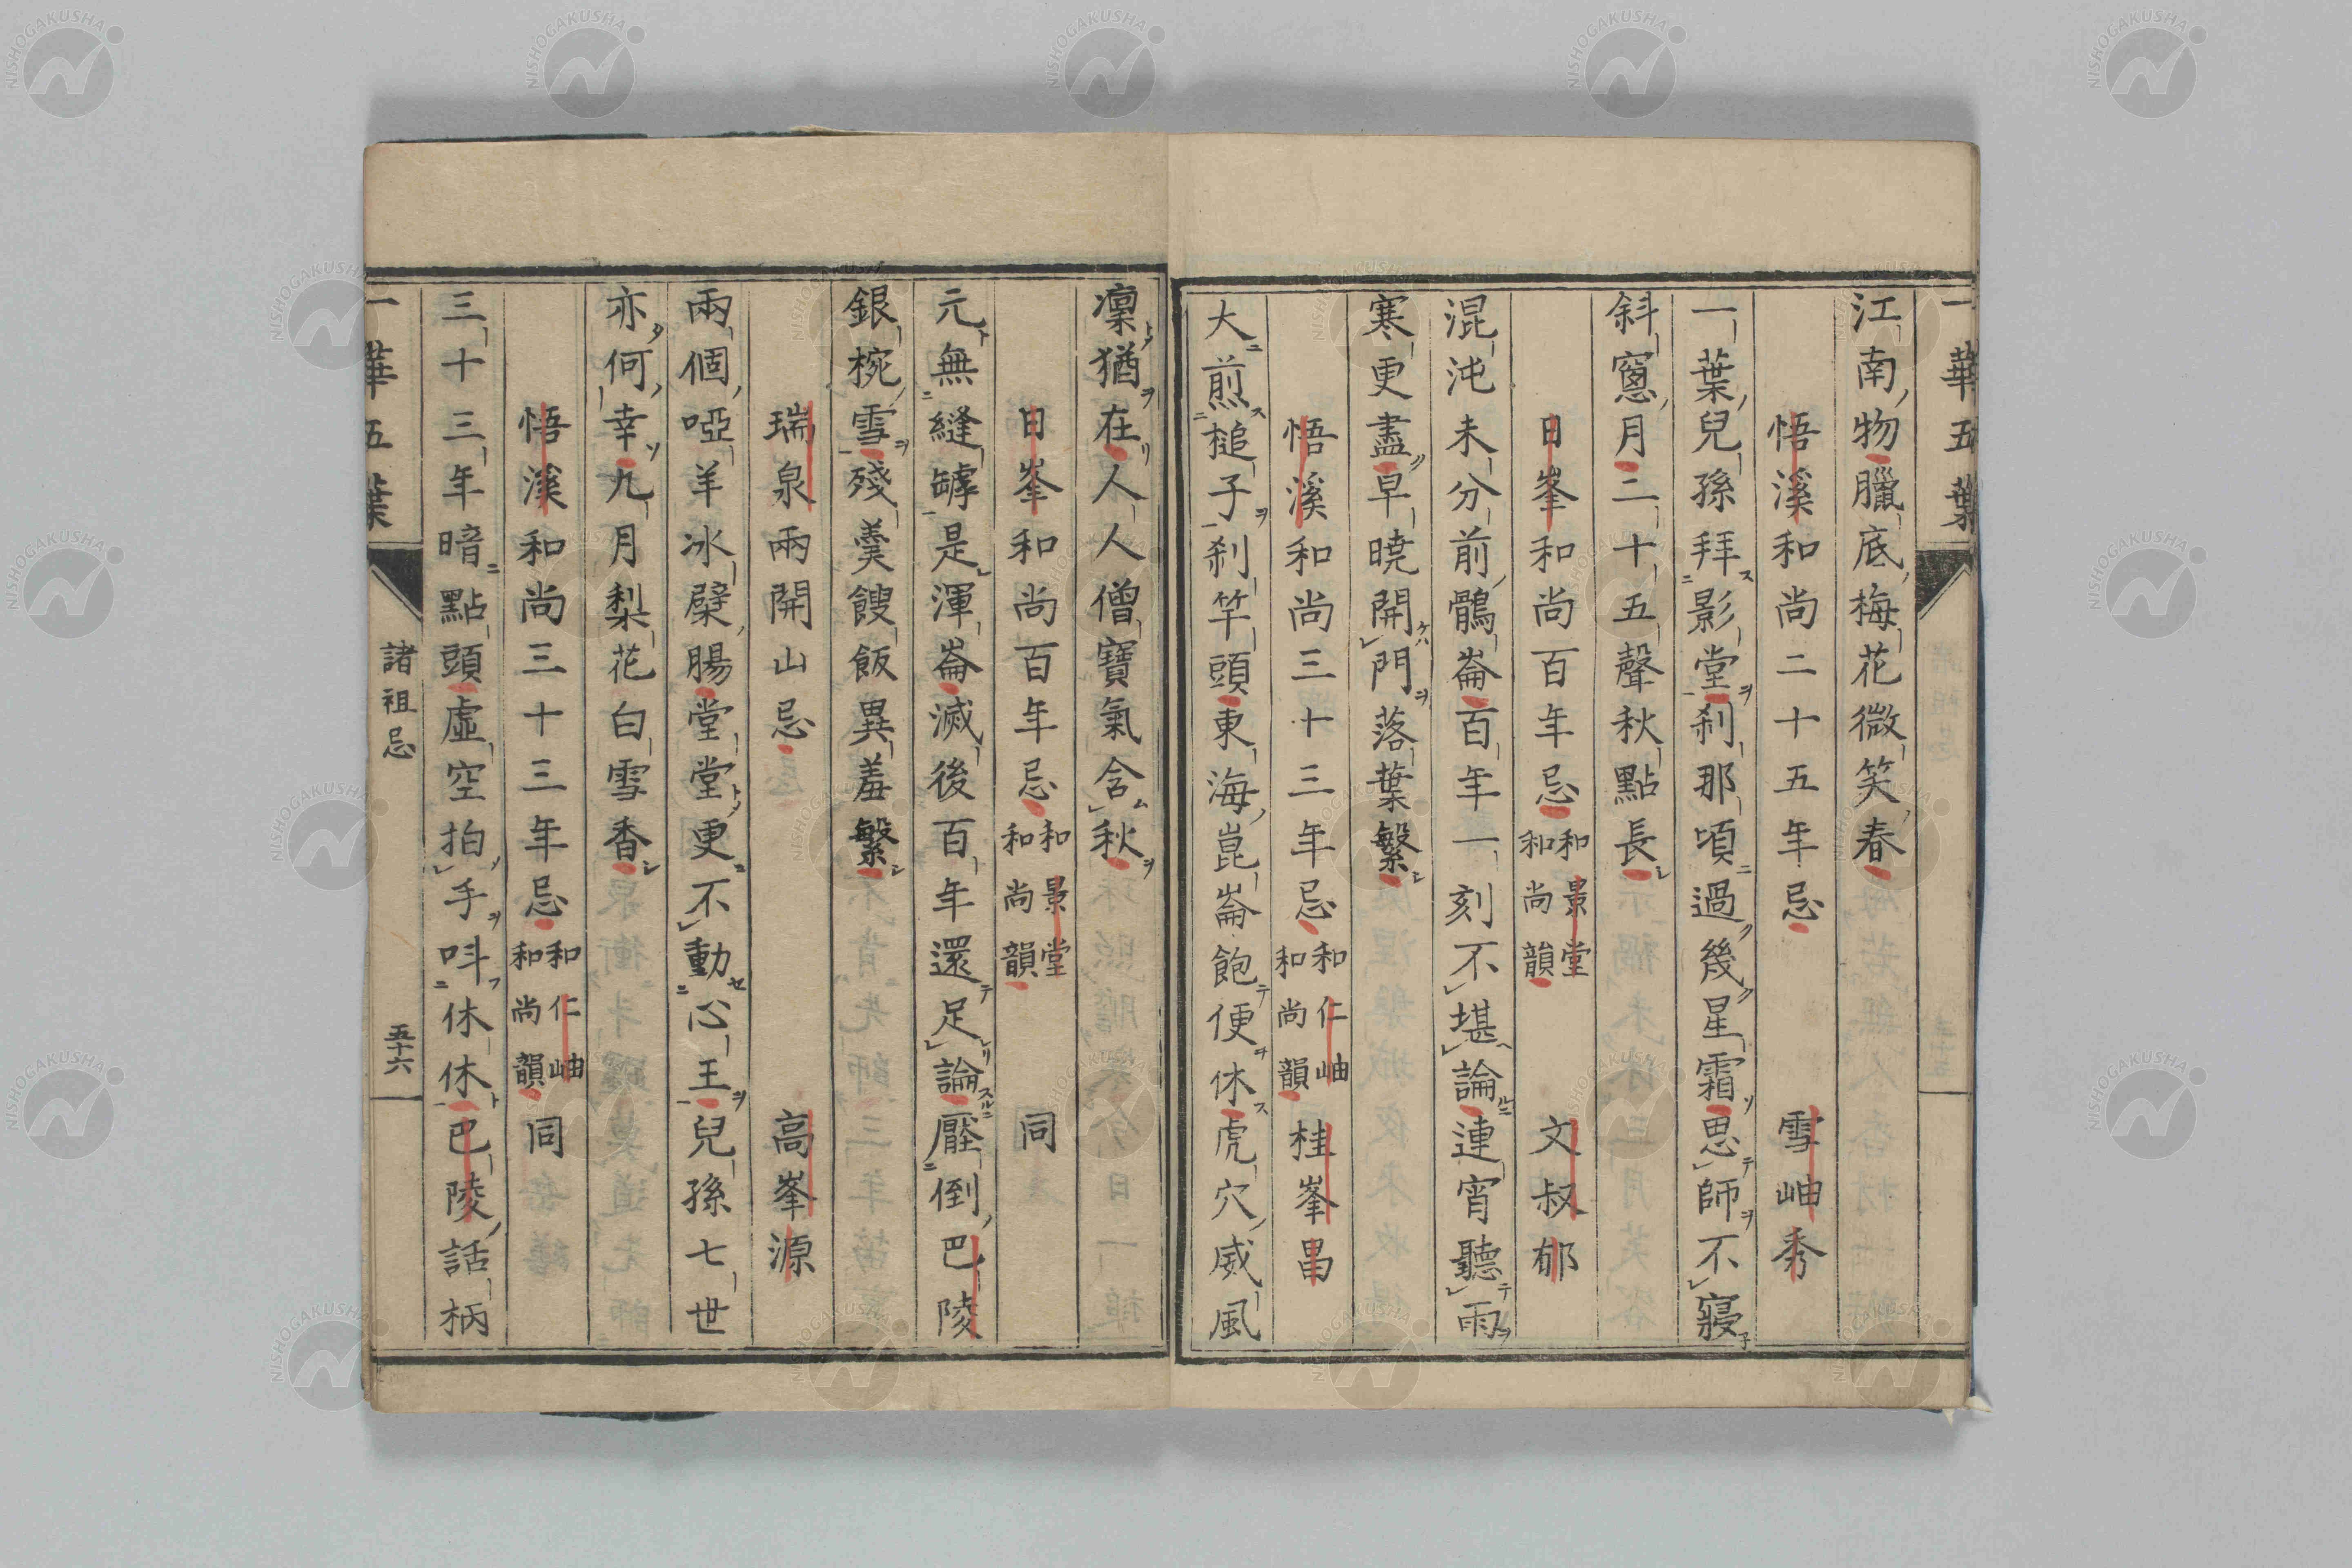 一華五葉
江南物臘底梅花微笑春
悟溪和尚二十五年忌 雪岫秀
一葉兒孫拜影堂刹那頃過幾星霜思師不寢
斜窻月二十五聲秋點長
日峯和尚百年忌 和景堂和尚韻 文叔郁
混沌未分前鶻崙百年一刻不堪論連宵聽雨
寒更盡早曉開門落葉繁
悟溪和尚三十三年忌 和仁岫和尚韻 桂峯昌
大煎槌子刹竿頭東海崑崙飽便休虎穴威風
凜猶在人人僧寶氣含秋
日峯和尚百年忌 和景堂和尚韻 同
元無縫罅是渾崙滅後百年還足論壓倒巴陵
銀椀雪殘羹餿飯異羞繁
瑞泉兩開山忌 高峯源
兩個啞羊冰檗腸堂堂更不動心王兒孫七世
亦何幸九月梨花白雪香
悟溪和尚三十三年忌 和仁岫和尚韻 同
三十三年暗點頭虛空拍手呌休休巴陵話柄
一華五葉 諸祖忌 五十六
NISHOGAKUSHA